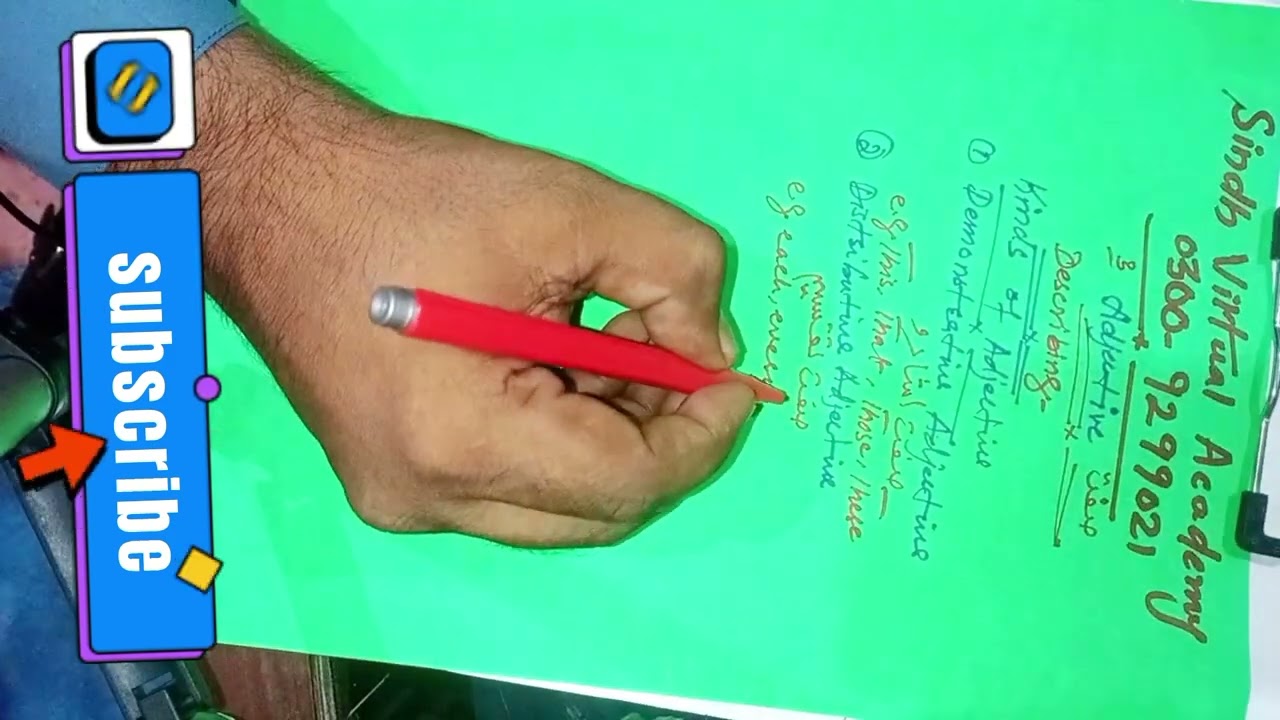 Sindh Virtual Academy
0300-9299021
3 Adjective صفت
Describing
Kinds of Adjective
① Demonstrative Adjective
صفت
e.g. this, that, those, these
② Distributive Adjective
صفت
e.g. each, every
subscribe